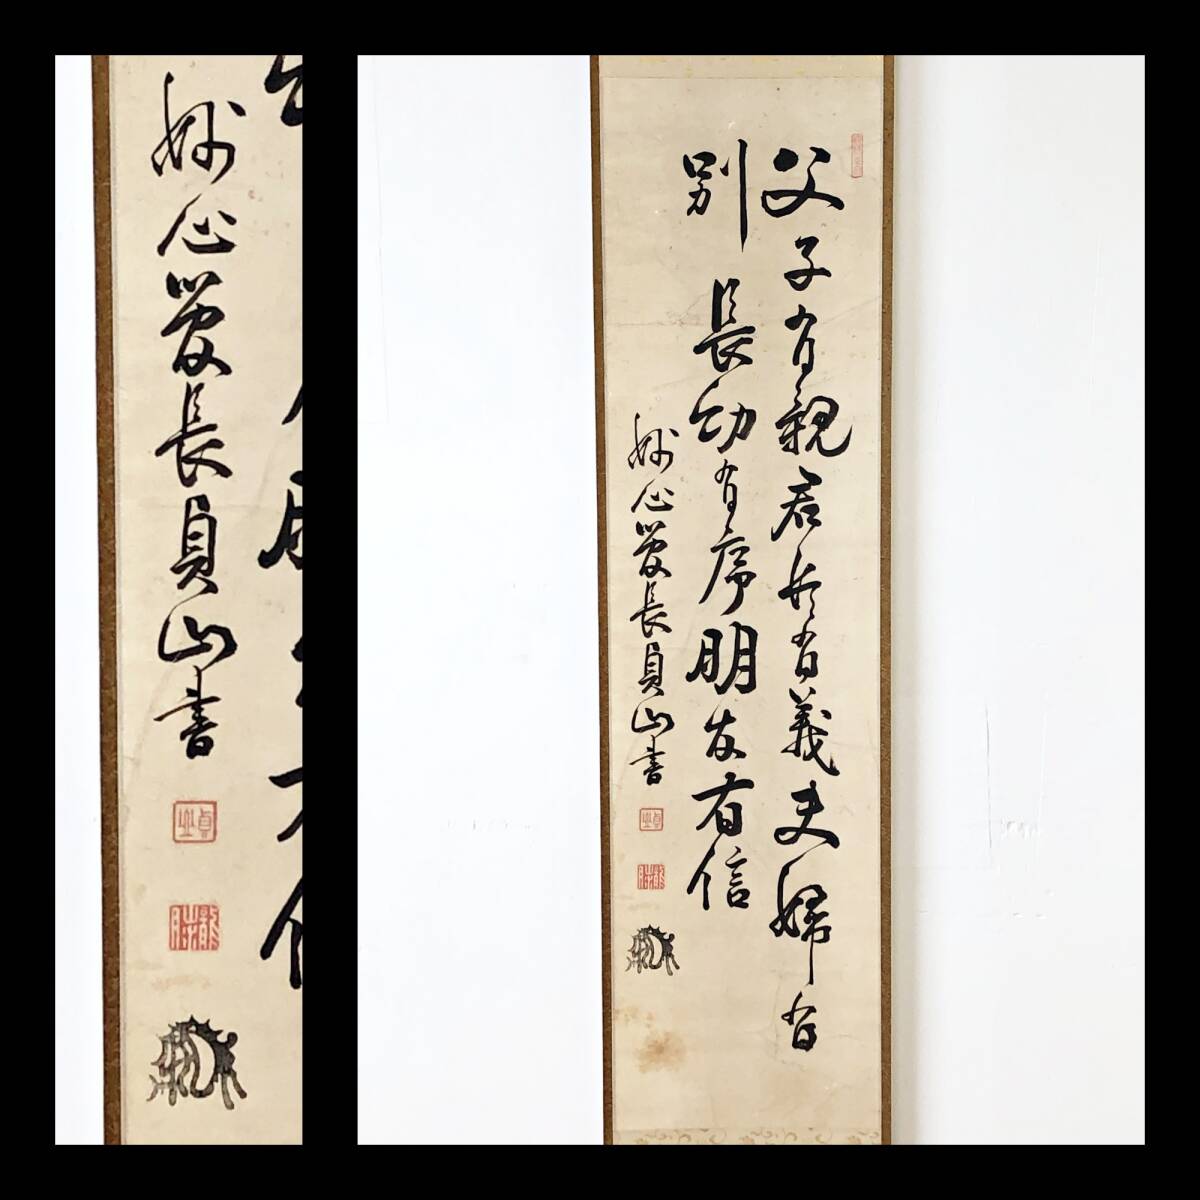 父子有親君臣有義夫婦有
別長幼有序朋友有信
妙心管長貞山書
貞山